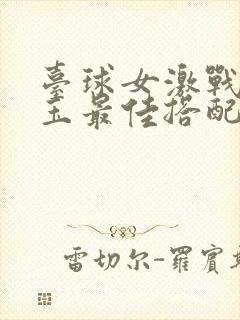 臺球女激戰
王最佳搭配
雷切尔-羅賓斯